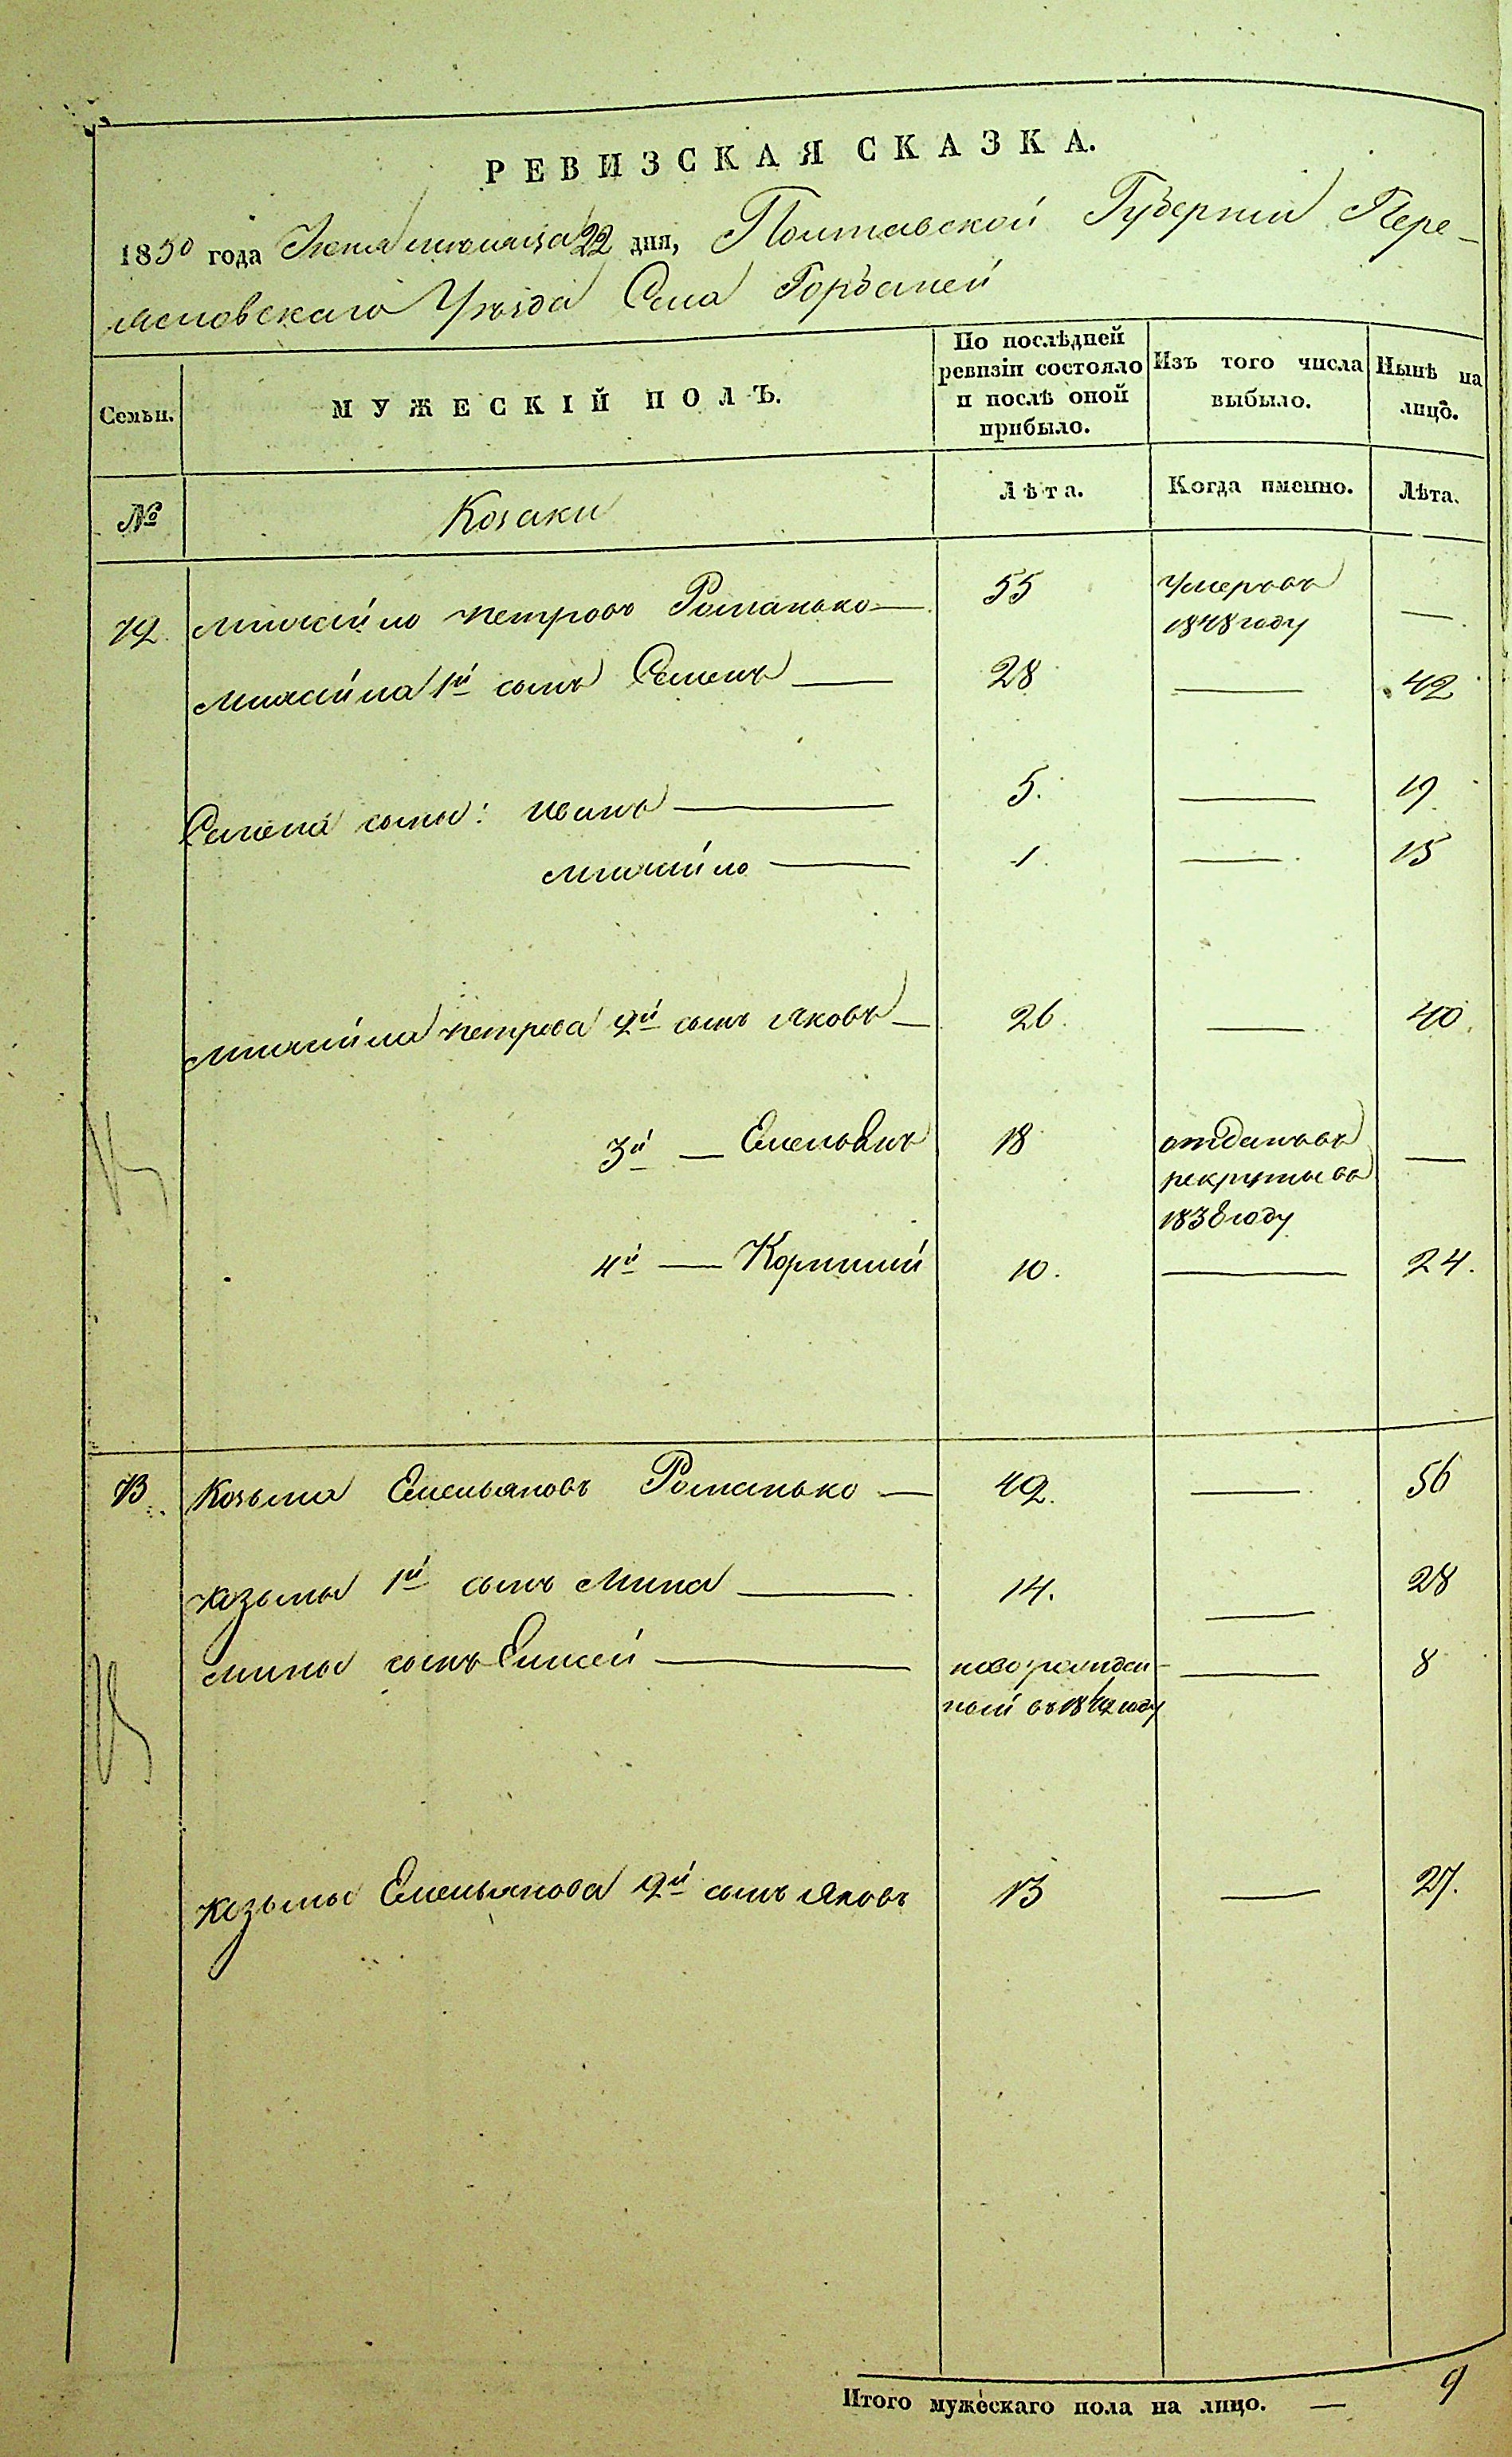 РЕВИЗСКАЯ СКАЗКА.
1850 года Июня месяца 22 дня, Полтавской Губернии Пере-
яславскаго Уѣзда Села Горбаней
Семьи.
МУЖЕСКІЙ ПОЛЪ.
По послѣдней ревизіи состояло и послѣ оной прибыло.
Изъ того числа выбыло.
Нынѣ на лицо.
№ Козаки Лѣта. Когда именно. Лѣта.
12 Михайло Петровъ Романько — 55 Умеръ въ —
1848 году
Михайла 1й сынъ Семенъ — 28 — 42
Семена сыны: Иванъ — 5. — 19
Михайло — 1. — 15
Михайла Петрова 2й сынъ Яковъ — 26. — 40.
3й — Емельянъ 18 отданъ въ —
рекруты въ
1838 году
4й — Корнилий 10. — 24.
13. Козьма Емельяновъ Романько — 42. — 56
Козьмы 1й сынъ Мина — 14. — 28
Мины сынъ Елисей — новорожден- — 8
ный въ 1842 году
Козьмы Емельянова 2й сынъ Яковъ 13 — 27.
Итого мужескаго пола на лицо. — 9